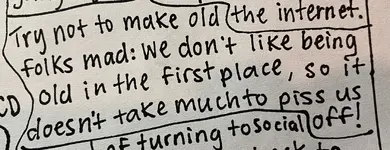 Try not to make old the internet.
folks mad: We don't like being
CD old in the first place, so it
doesn't take much to piss us
of turning to social off!